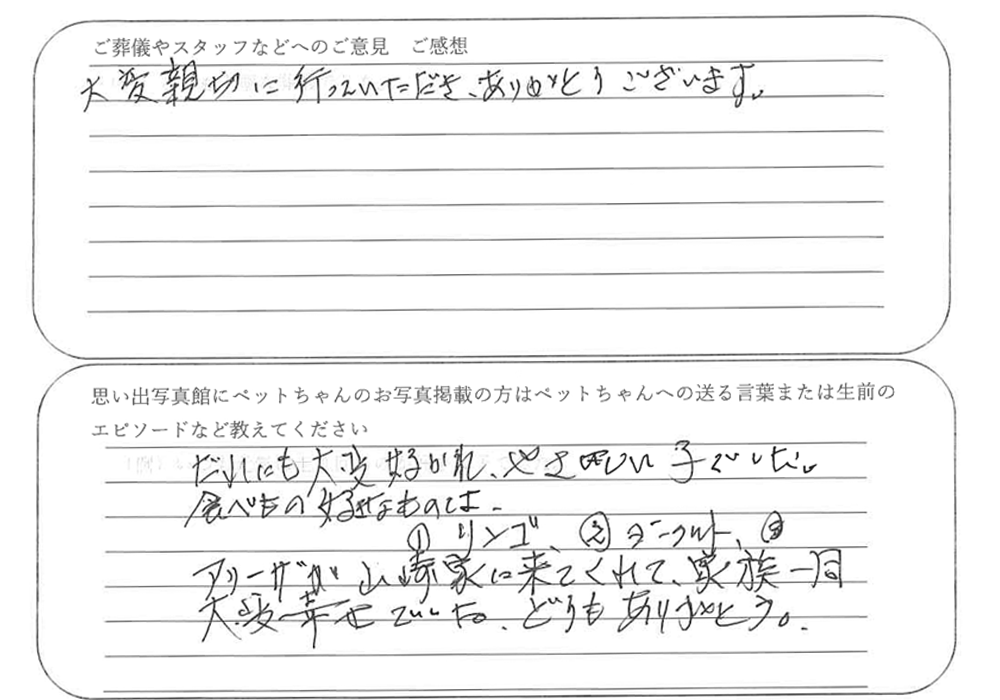 ご葬儀やスタッフなどへのご意見　ご感想
大変親切に行っていただき、ありがとうございます。
思い出写真館にペットちゃんのお写真掲載の方はペットちゃんへの送る言葉または生前の
エピソードなど教えてください
だれにも大変好かれ、やさしい子でした。
食べもの好きなものは、
① リンゴ、② ヨーグルト、③
アリーザが山崎家に来てくれて、家族一同
大変幸せでした。どうもありがとう。